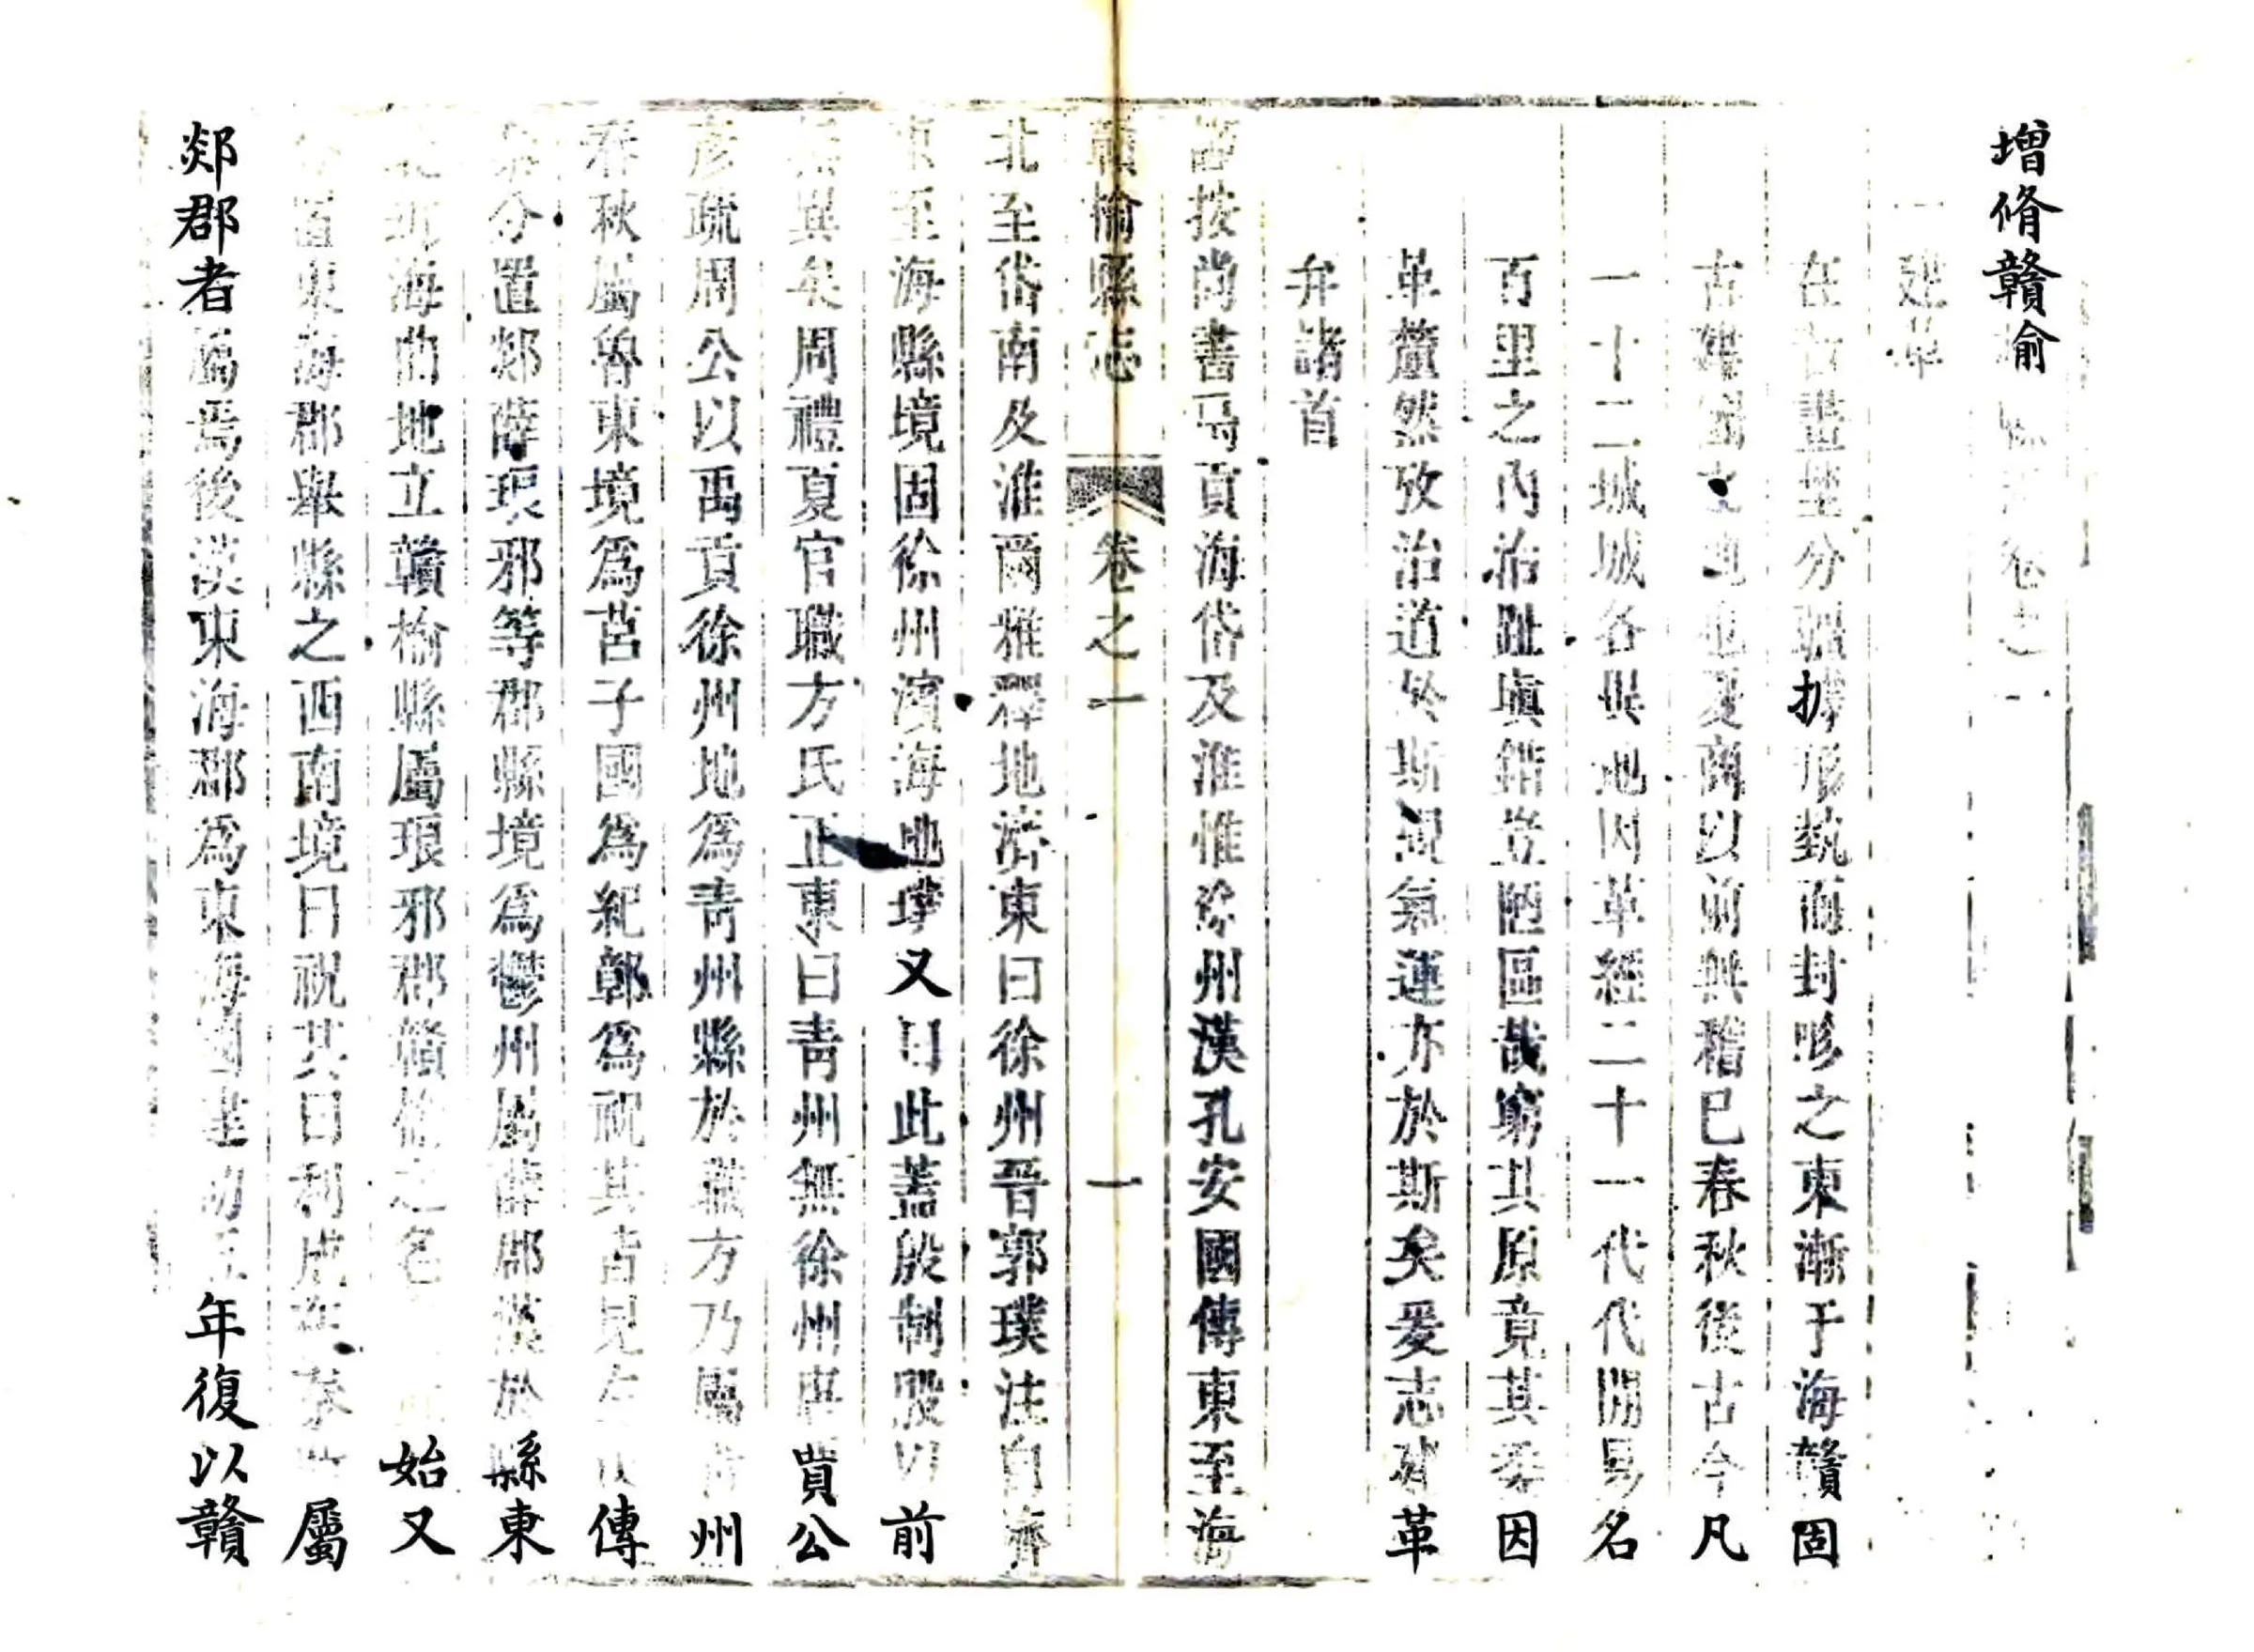 增脩贛榆縣志卷之一
一建革
在昔畫埜分疆據形埶而封畛之東漸于海贛固
古建國之地也夏商以前無稽已春秋後古今凡
一十二城城各異地因革經二十一代代開易名
百里之內治趾塡錯豈陋區哉窮其原竟其委因
革釐然攷治道於斯觀氣運亦於斯矣爰志建革
弁諸首
謹按尚書禹貢海岱及淮惟徐州漢孔安國傳東至海
贛榆縣志 卷之一 一
北至岱南及淮爾雅釋地濟東曰徐州晉郭璞注自濟
東至海縣境固徐州濱海地璞又曰此蓋殷制殷以前
無異矣周禮夏官職方氏正東曰青州無徐州唐賈公
彥疏周公以禹貢徐州地爲青州縣於職方乃屬青州
春秋屬魯東境爲莒子國爲紀鄣爲祝其皆見左氏傳
秦分置郯薛琅邪等郡縣境爲鬱州屬薛郡漢於縣東
北近海曲地立贛榆縣屬琅邪郡贛榆之名 始又
分置東海郡舉縣之西南境曰祝其曰利成 屬
郯郡者屬焉後漢東海郡爲東海國建初五年復以贛